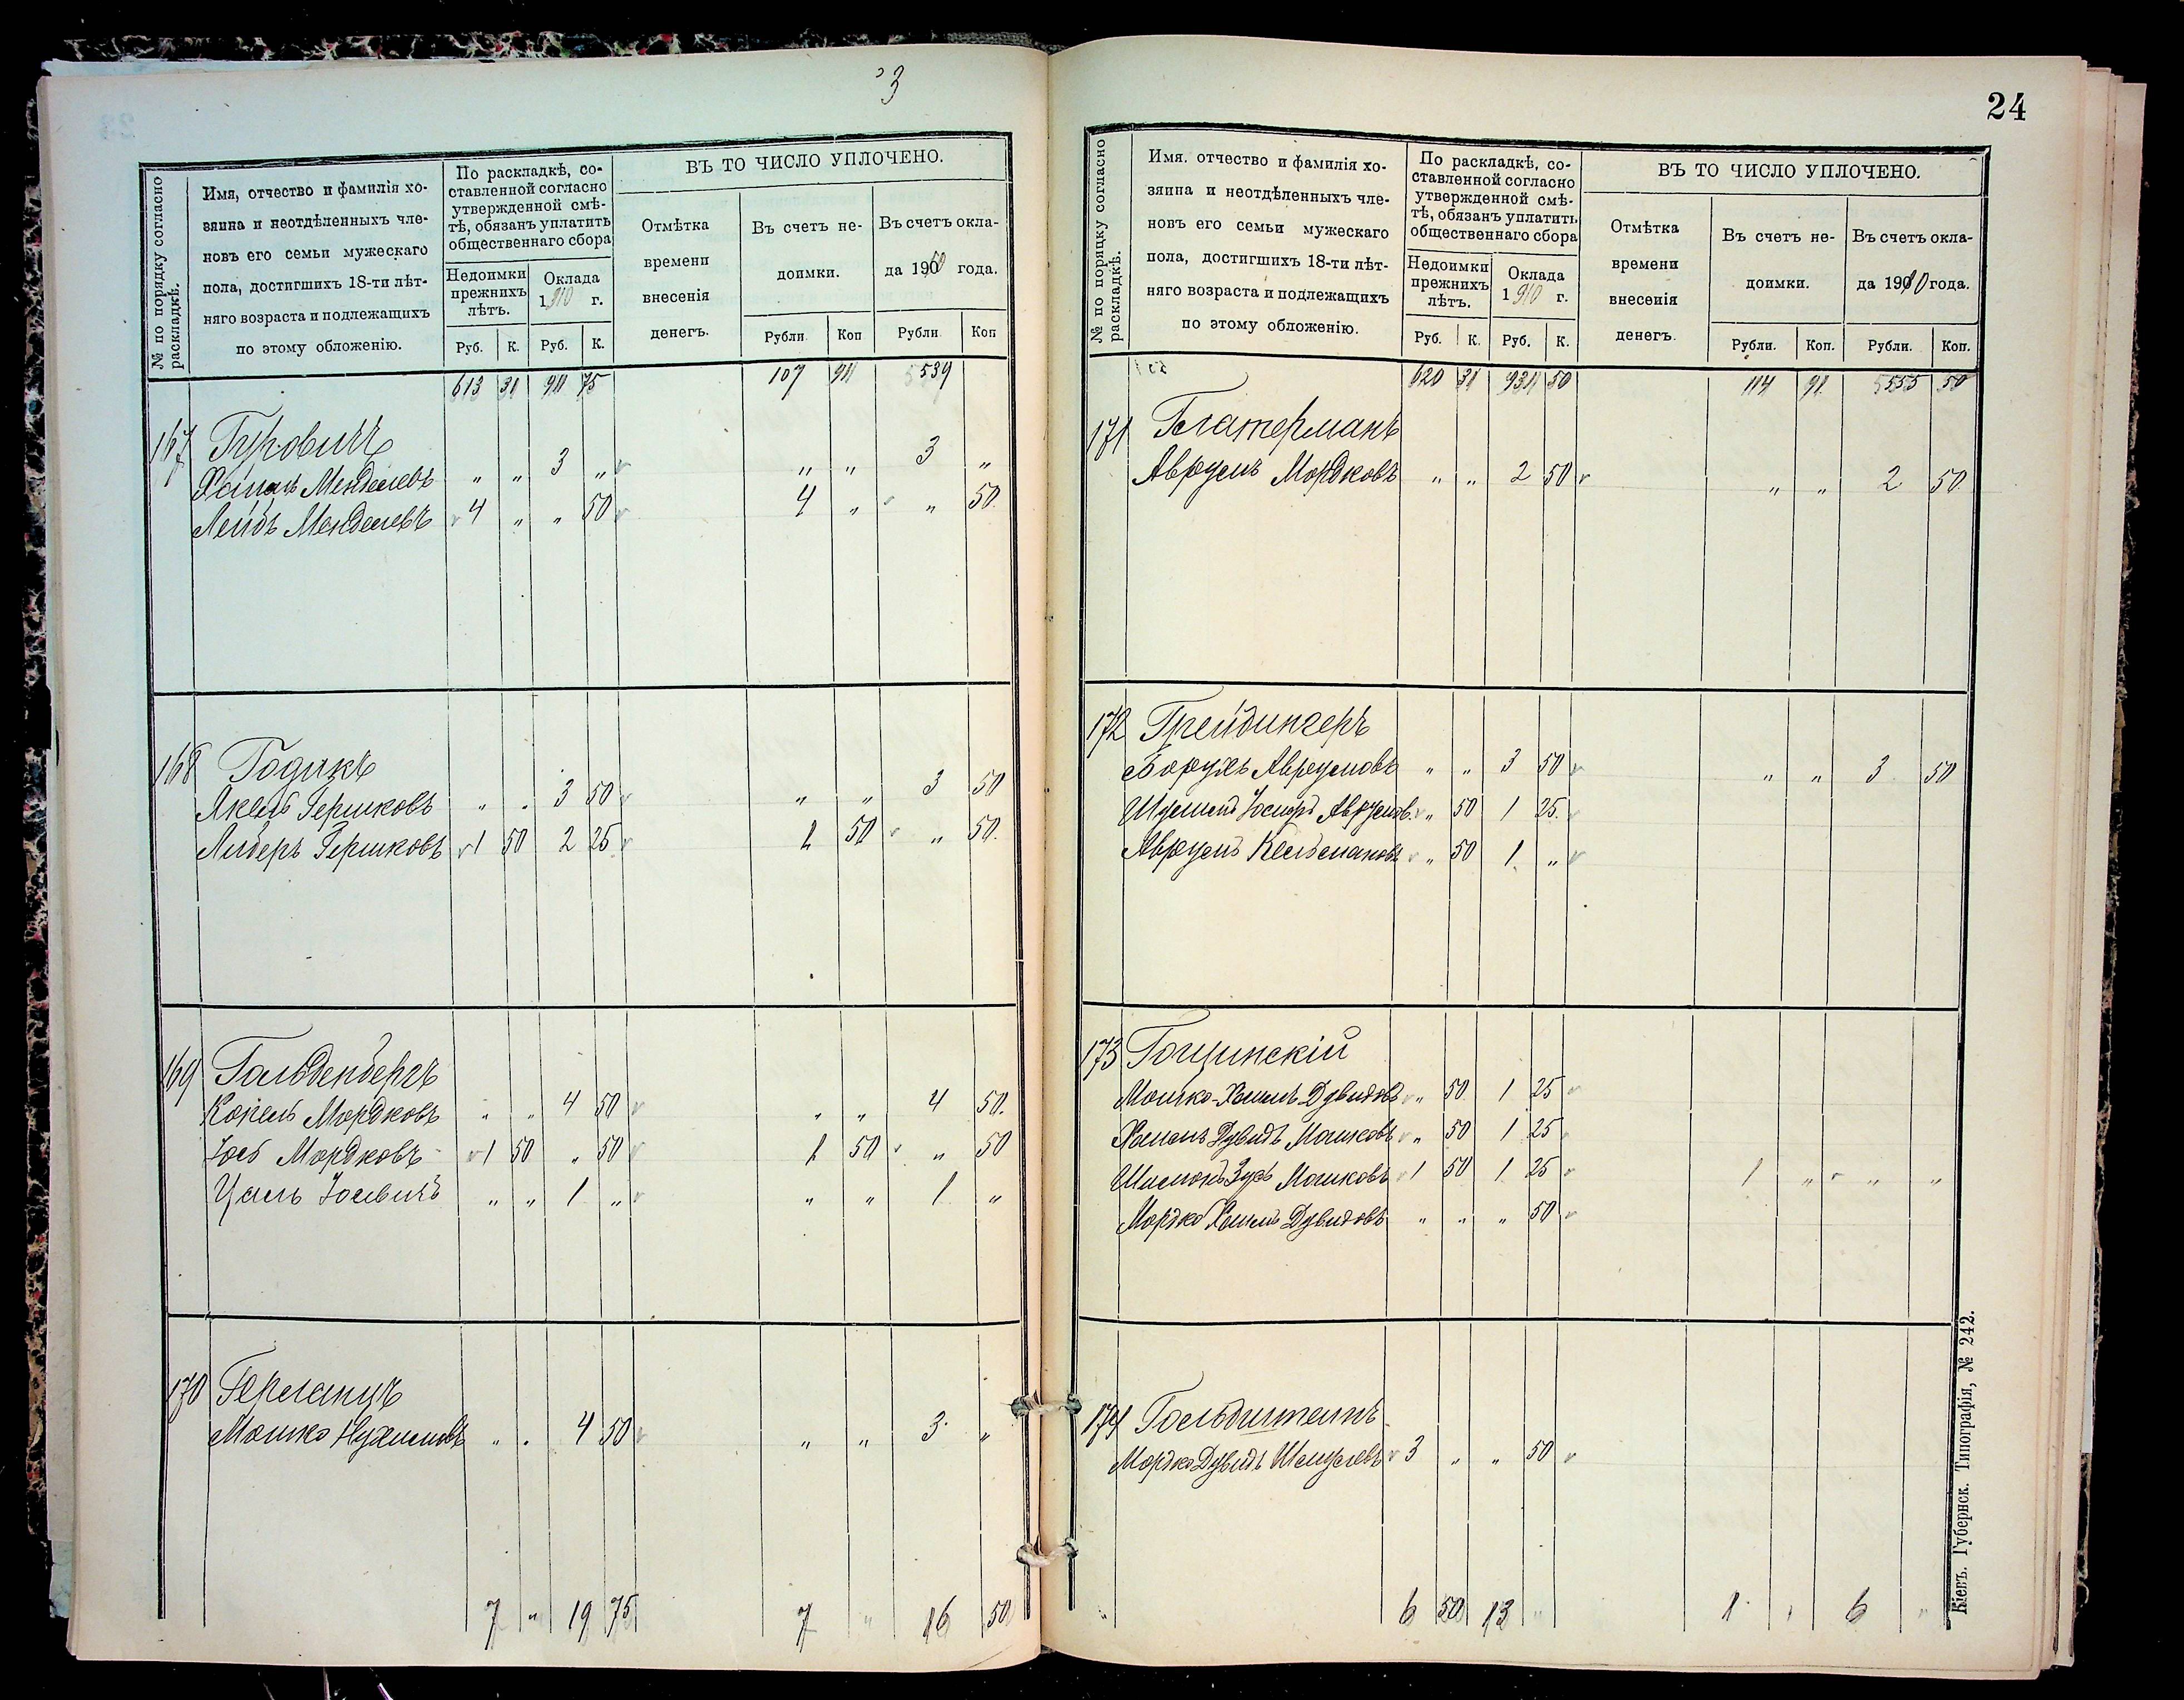 3
№ по порядку согласно раскладкѣ.
Имя, отчество и фамилія хо-
зяина и неотдѣленныхъ чле-
новъ его семьи мужескаго
пола, достигшихъ 18-ти лѣт-
няго возраста и подлежащихъ
по этому обложенію.
По раскладкѣ, со-
ставленной согласно
утвержденной смѣ-
тѣ, обязанъ уплатить
общественнаго сбора
Недоимки
прежнихъ
лѣтъ.
Оклада
1910 г.
Руб. К. Руб. К.
ВЪ ТО ЧИСЛО УПЛОЧЕНО.
Отмѣтка
времени
внесенія
денегъ.
Въ счетъ не-
доимки.
Въ счетъ окла-
да 1910 года.
Рубли Коп Рубли Коп
613 31 911 75 107 91 5539
167 Гурович
Мендлевъ " " 3 " " " 3 "
Лейбъ Менделевъ 4 " " 50 4 " " 50
168 Годикъ
Янкель Гершковъ " " 3 50 " " 3 50
Либеръ Гершковъ 1 50 2 25 1 50 " 50
169 Гольденбергъ
Копель Мордковъ " " 4 50 " " 4 50
Іосъ Мордковъ 1 50 " 50 1 50 " 50
Цаль Іосевичъ " " 1 " " " 1 "
170 Германъ
Мошко Нухимовъ " " 4 50 " " 3 "
7 " 19 75 7 " 16 50
24
№ по порядку согласно раскладкѣ.
Имя. отчество и фамилія хо-
зяина и неотдѣленныхъ чле-
новъ его семьи мужескаго
пола, достигшихъ 18-ти лѣт-
няго возраста и подлежащихъ
по этому обложенію.
По раскладкѣ, со-
ставленной согласно
утвержденной смѣ-
тѣ, обязанъ уплатить
общественнаго сбора
Недоимки
прежнихъ
лѣтъ.
Оклада
1910 г.
Руб. К. Руб. К.
ВЪ ТО ЧИСЛО УПЛОЧЕНО.
Отмѣтка
времени
внесенія
денегъ.
Въ счетъ не-
доимки.
Въ счетъ окла-
да 1910 года.
Рубли. Коп. Рубли. Коп.
620 31 931 50 114 91 5555 50
171 Глатерманъ
Аврумъ Мордковъ " " 2 50 " " 2 50
172 Грейдингеръ
Борухъ Аврумовъ " " 3 50 " " 3 50
Шулимъ Іосифъ Аврумов. " 50 1 25
Аврумъ Кельмановъ " 50 1 "
173 Гощинскій
Мошко-Хаимъ Дувидовъ " 50 1 25
Хаимъ Дувидъ Мошковъ " 50 1 25
Шимонъ Зусь Мошковъ 1 50 1 25 1 " " "
Мордко Хаимъ Дувидовъ " " " 50
174 Гольдштейнъ
Мордко Дувидъ Шмулевъ 3 " " 50
6 50 13 " 1 " 6 "
Кіевъ. Губернск. Типографія, № 242.